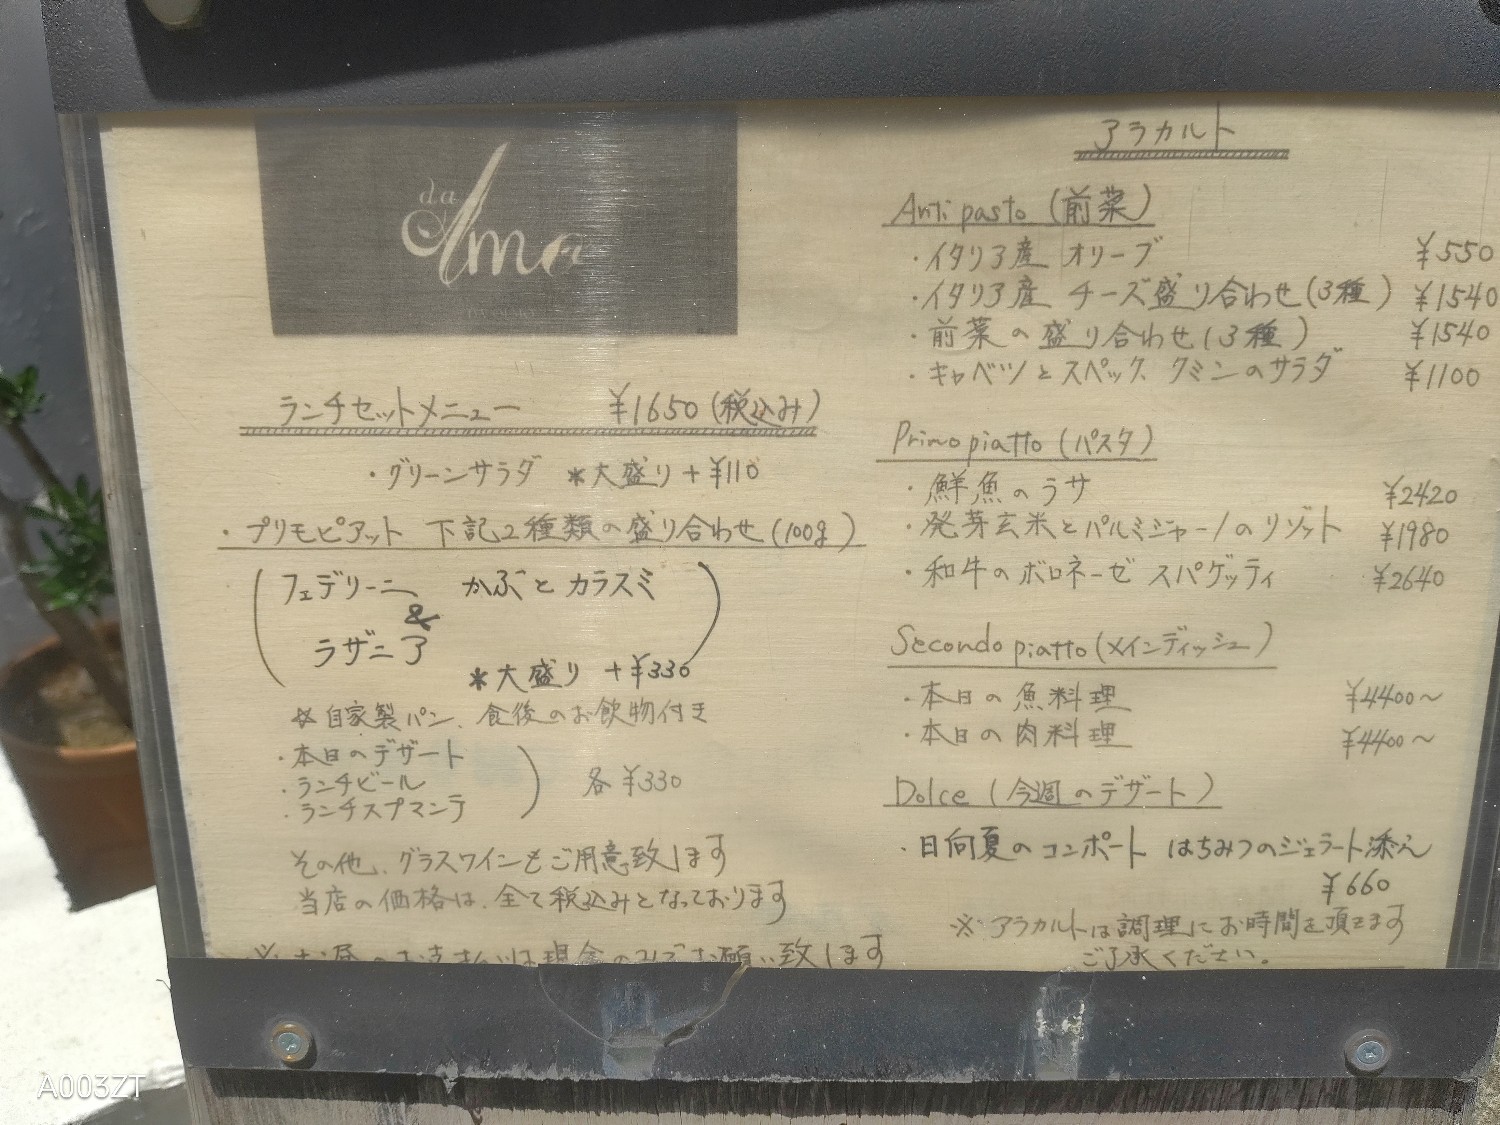 da
Amo
ランチセットメニュー ¥1650(税込み)
・グリーンサラダ *大盛り+¥110
・プリモピアット 下記2種類の盛り合わせ(100g)
フェデリーニ かぶとカラスミ
&
ラザニア
*大盛り +¥330
※自家製パン、食後のお飲物付き
・本日のデザート
・ランチビール
・ランチスプマンテ
各¥330
その他、グラスワインもご用意致します
当店の価格は、全て税込みとなっております
※お昼のお支払いは現金のみでお願い致します
アラカルト
Antipasto(前菜)
・イタリア産 オリーブ ¥550
・イタリア産 チーズ盛り合わせ(3種) ¥1540
・前菜の盛り合わせ(3種) ¥1540
・キャベツとスペック、クミンのサラダ ¥1100
Primo piatto(パスタ)
・鮮魚のラサ ¥2420
・発芽玄米とパルミジャーノのリゾット ¥1980
・和牛のボロネーゼ スパゲッティ ¥2640
Secondo piatto(メインディッシュ)
・本日の魚料理 ¥4400~
・本日の肉料理 ¥4400~
Dolce(今週のデザート)
・日向夏のコンポート はちみつのジェラート添え
¥660
※アラカルトは調理にお時間を頂きます
ご了承ください。
A003ZT